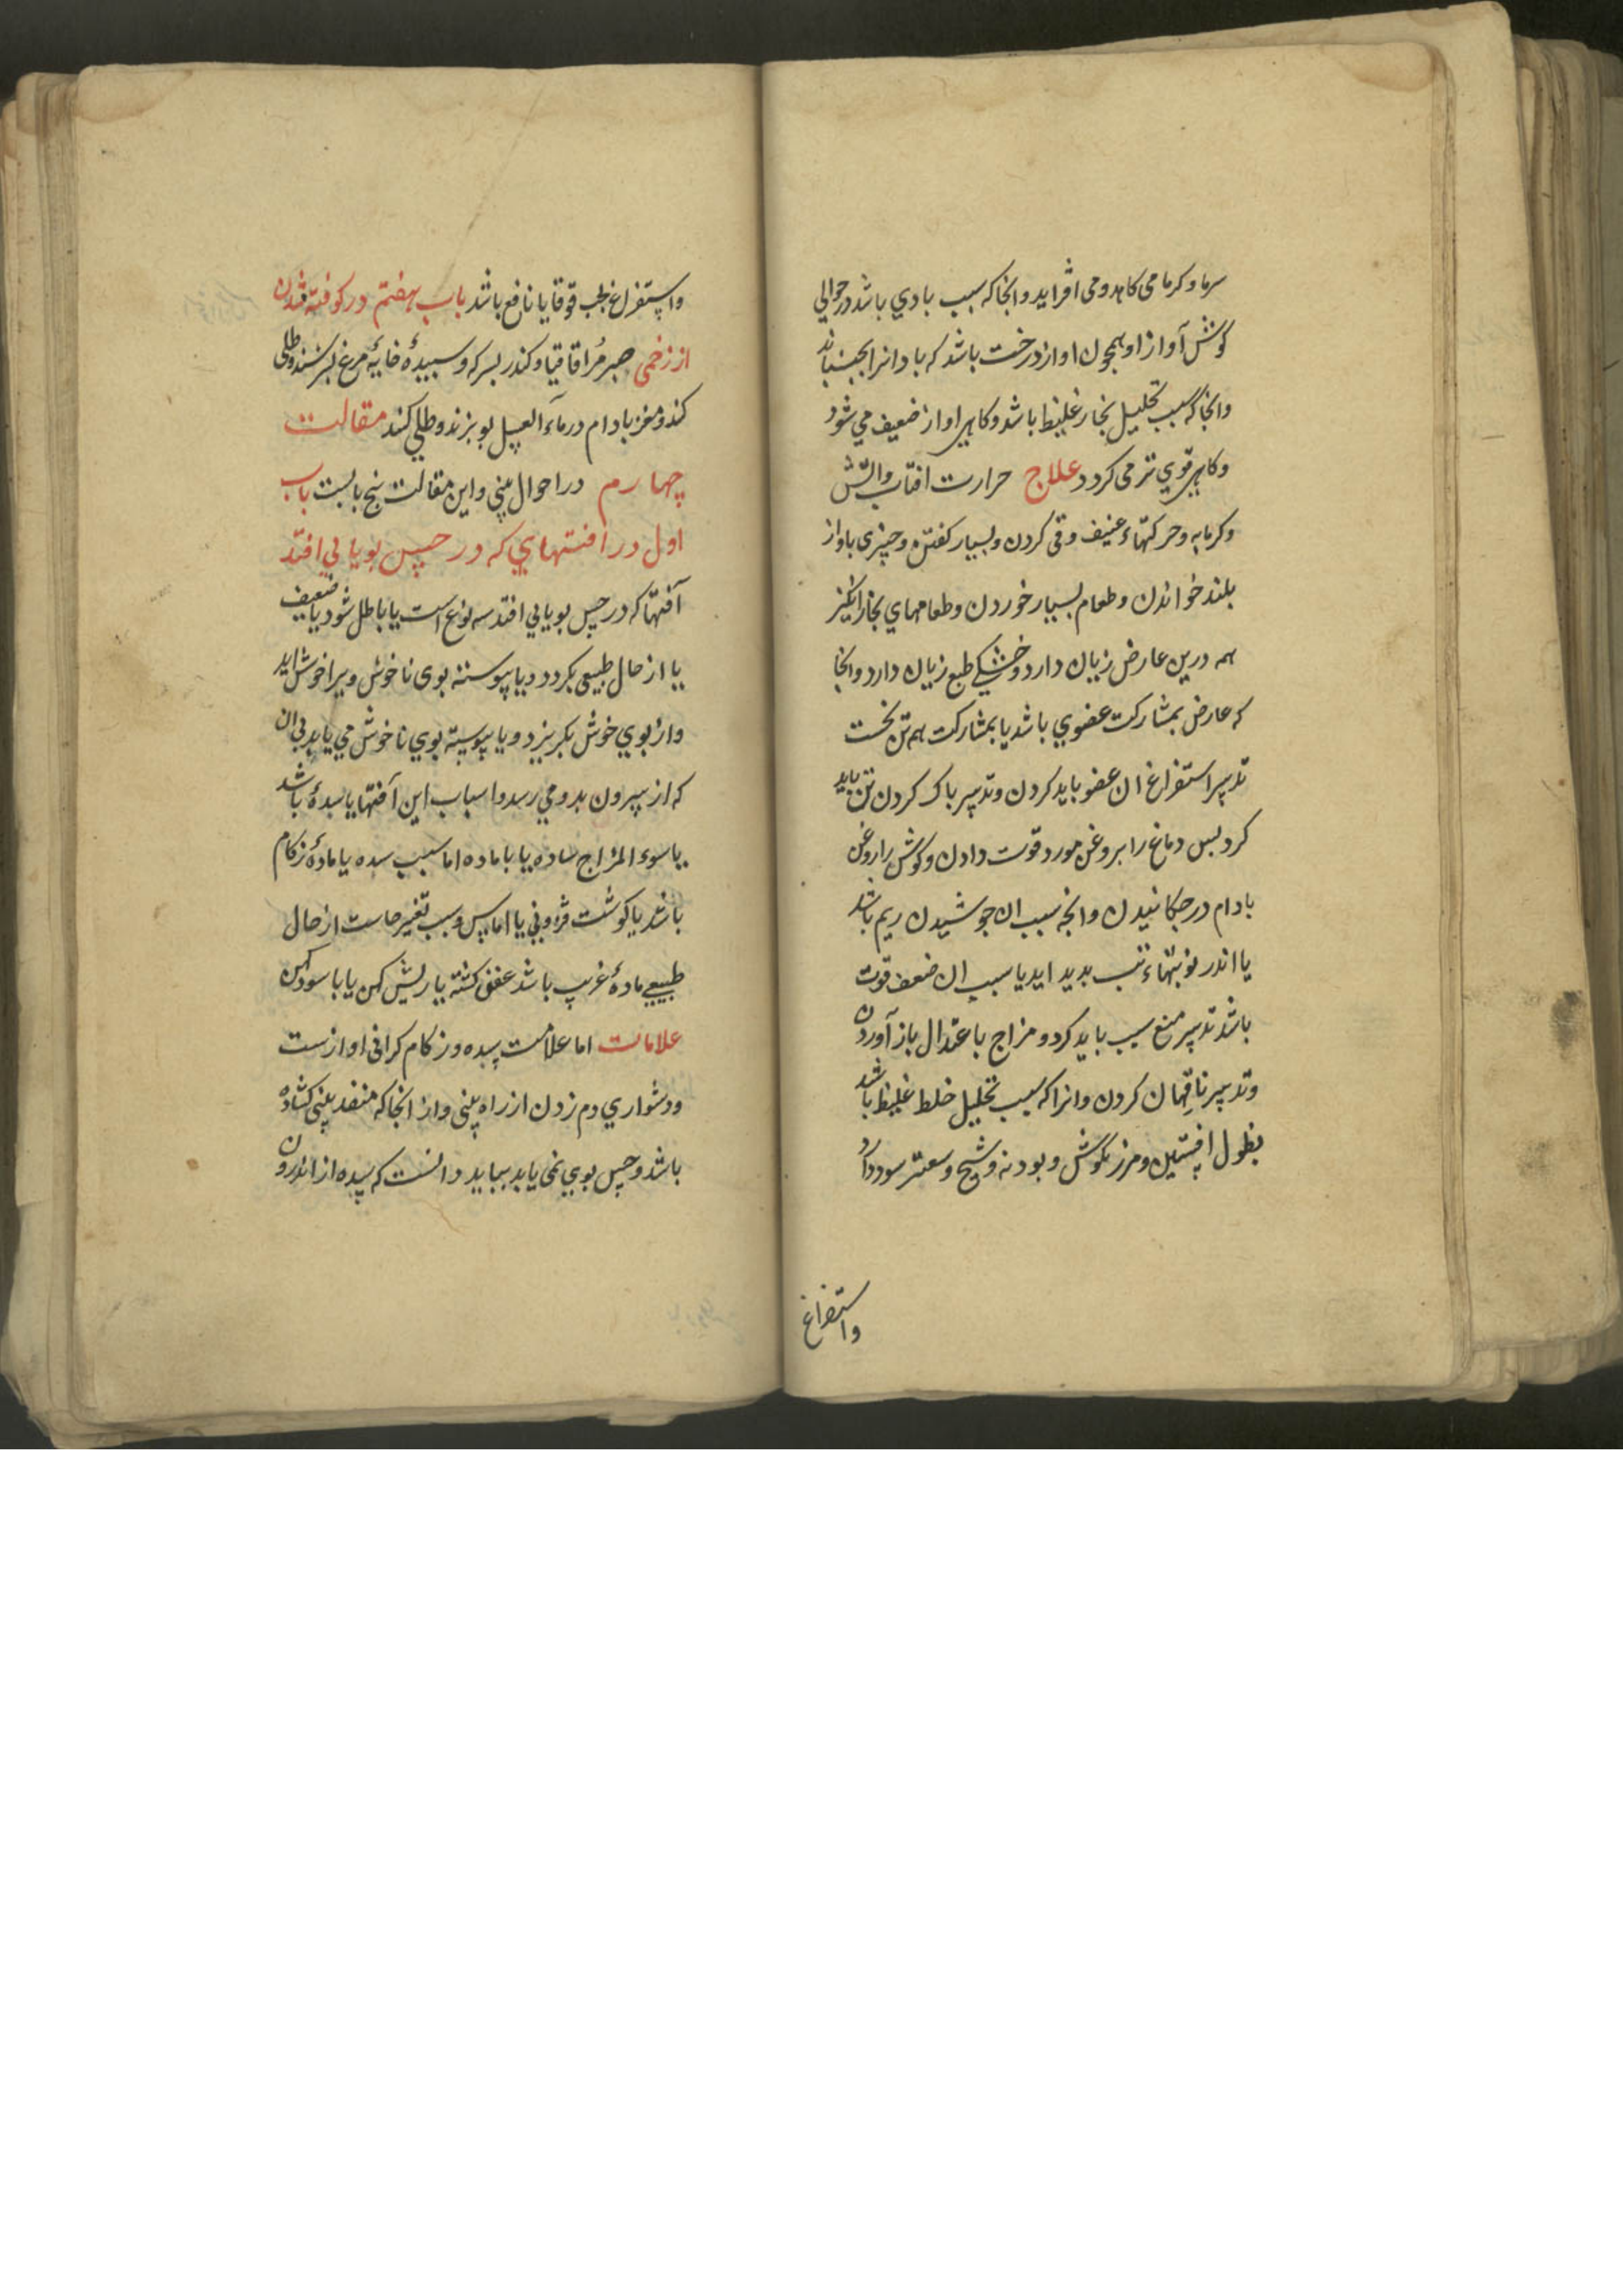 سرما و کرما می کاهد و می افزاید و انجا که سبب بادی باشد در حوالی
کوش آواز او همچون اواز درخت باشد که باد انرا بجنباند
و انجا که سبب تحلیل بخار غلیظ باشد و کاهی اواز ضعیف می شود
و کاهی قوی تر می کردد علاج حرارت افتاب و اتش
و کرمابه و حرکتهاء عنیف و قی کردن و بسیار کفتن و چیزی باواز
بلند خواندن و طعام بسیار خوردن و طعامهای بخار انکیز
همه درین عارض زیان دارد و خشکی طبع زیان دارد و انجا
که عارض بمشارکت عضوی باشد یا بمشارکت همه تن نخست
تدبیر استفراغ ان عضو باید کردن و تدبیر باک کردن تن باید
کرد بس دماغ را بروغن مورد قوت دادن و کوش را روغن
بادام در جکانیدن و انجه سبب ان جوشیدن ریم باشد
یا اندر نوبتهاء تب بدید اید یا سبب ان ضعف قوت
باشد تدبیر منع سبب باید کرد و مزاج باعتدال باز آوردن
و تدبیر ناقهان کردن و انرا که سبب تحلیل خلط غلیظ باشد
بطول افسنتین و مرزنکوش و بودنه و شیح و سعتر سود دارد
واستفراغ
واستفراغ بحب قوقایا نافع باشد باب هفتم در کوفته شدن
از زخمی صبر مر اقاقیا و کندر بسرکه و سبیدۀ خایۀ مرغ بسرشند و طلی
کنند و مغز بادام در ماء العسل بو بزند و طلی کنند مقالت
چهارم در احوال بینی و این مقالت پنج بابست باب
اول در افتهای که در حس بویایی افتد
آفتها که در حس بویایی افتد سه نوع است یا باطل شود یا ضعیف
یا از حال طبیعی بکردد و یا پیوسته بوی ناخوش ویرا خوش اید
و از بوی خوش بکریزد و یا پیوسته بوی ناخوش می یابد بی ان
که از بیرون بدو می رسد و اسباب این آفتها یا سدۀ باشد
یا سوء المزاج ساده یا با ماده اما سبب سده یا مادۀ زکام
باشد یا کوشت فزونی یا اماس و سبب تغیر حاست از حال
طبیعی مادۀ غریب باشد عفن کشته یا ریش کهن یا باسود کهن
علامات اما علامت سده و زکام کرانی اوازست
و دشواری دم زدن از راه بینی و از انجا که منفد بینی کشاده
باشد و حس بوی نمی یابد بباید دانست که سده از اندرون